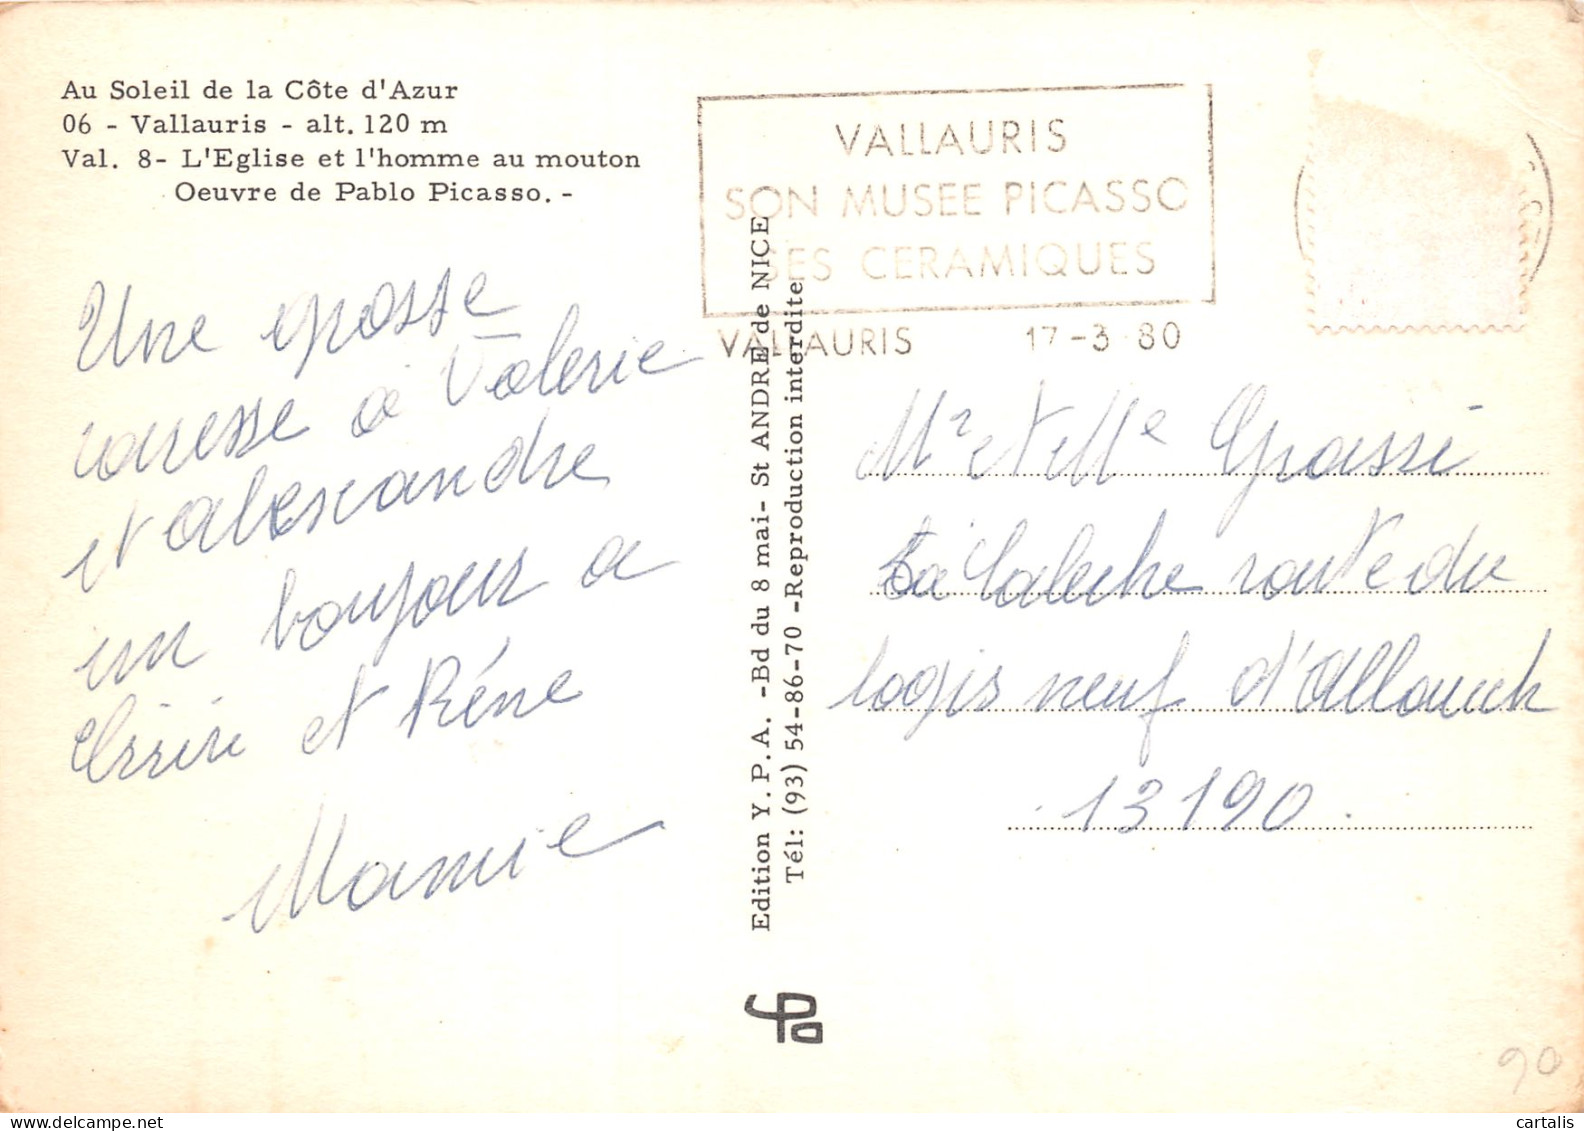 Au Soleil de la Côte d'Azur
06 - Vallauris - alt. 120 m
Val. 8- L'Eglise et l'homme au mouton
Oeuvre de Pablo Picasso. -
VALLAURIS
SON MUSEE PICASSO
SES CERAMIQUES
VALLAURIS 17-3 80
Une grosse
caresse a Valerie
et alexandre
un bonjour a
et Réne
Mamie
Edition Y.P.A. -Bd du 8 mai- St ANDRE de NICE
Tél: (93) 54-86-70 -Reproduction interdite
Mr et Mlle Grassi
La Caleche route du
logis neuf d'Allauch
13190.
90
cartalis